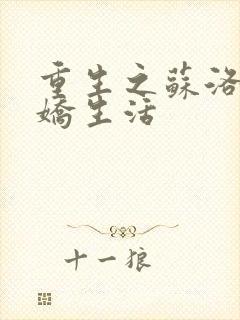 重生之蘇洛
嬌生活
十一狼